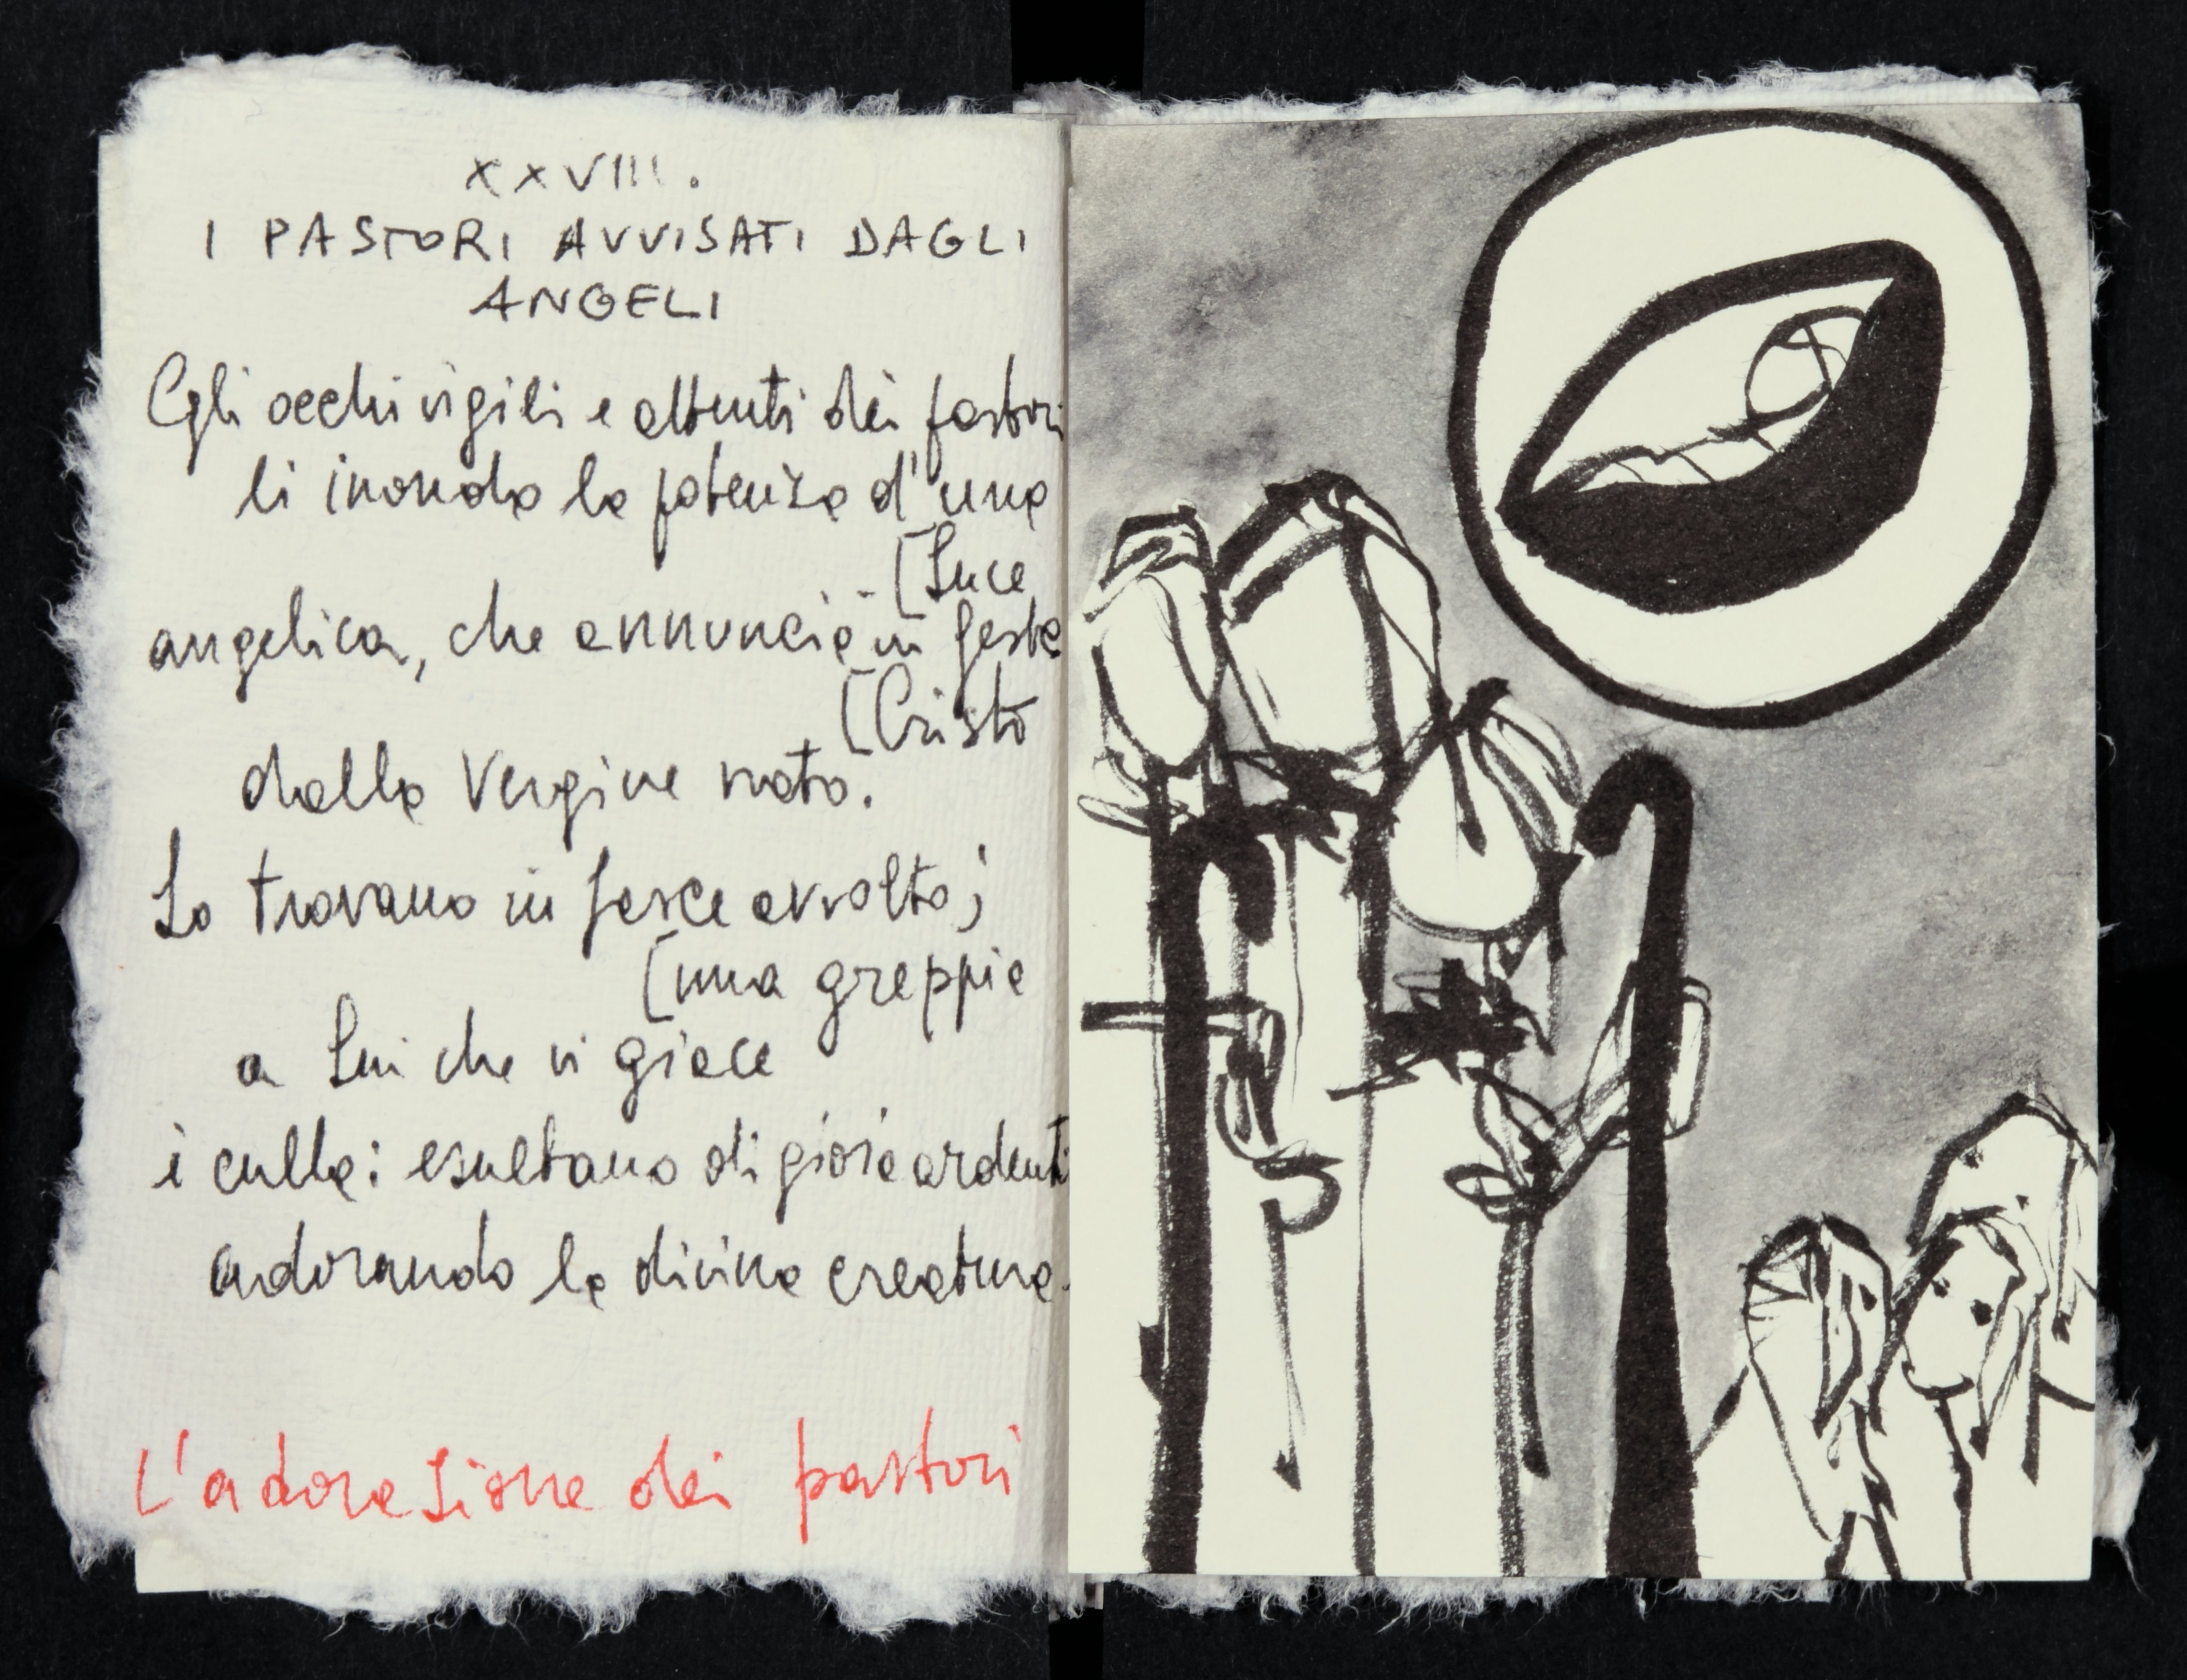 XXVIII.
I PASTORI AVVISATI DAGLI
ANGELI
Egli occhi vigili e attenti dei pastori
li inonda la potenza d'una
[Luce
angelica, che annuncia in festa
[Cristo
dalla Vergine nato.
Lo trovano in fasce avvolto;
[una greppia
a Lui che vi giace
è culla: esultano di gioia ardenti
adorando la divina creatura.
L'adorazione dei pastori